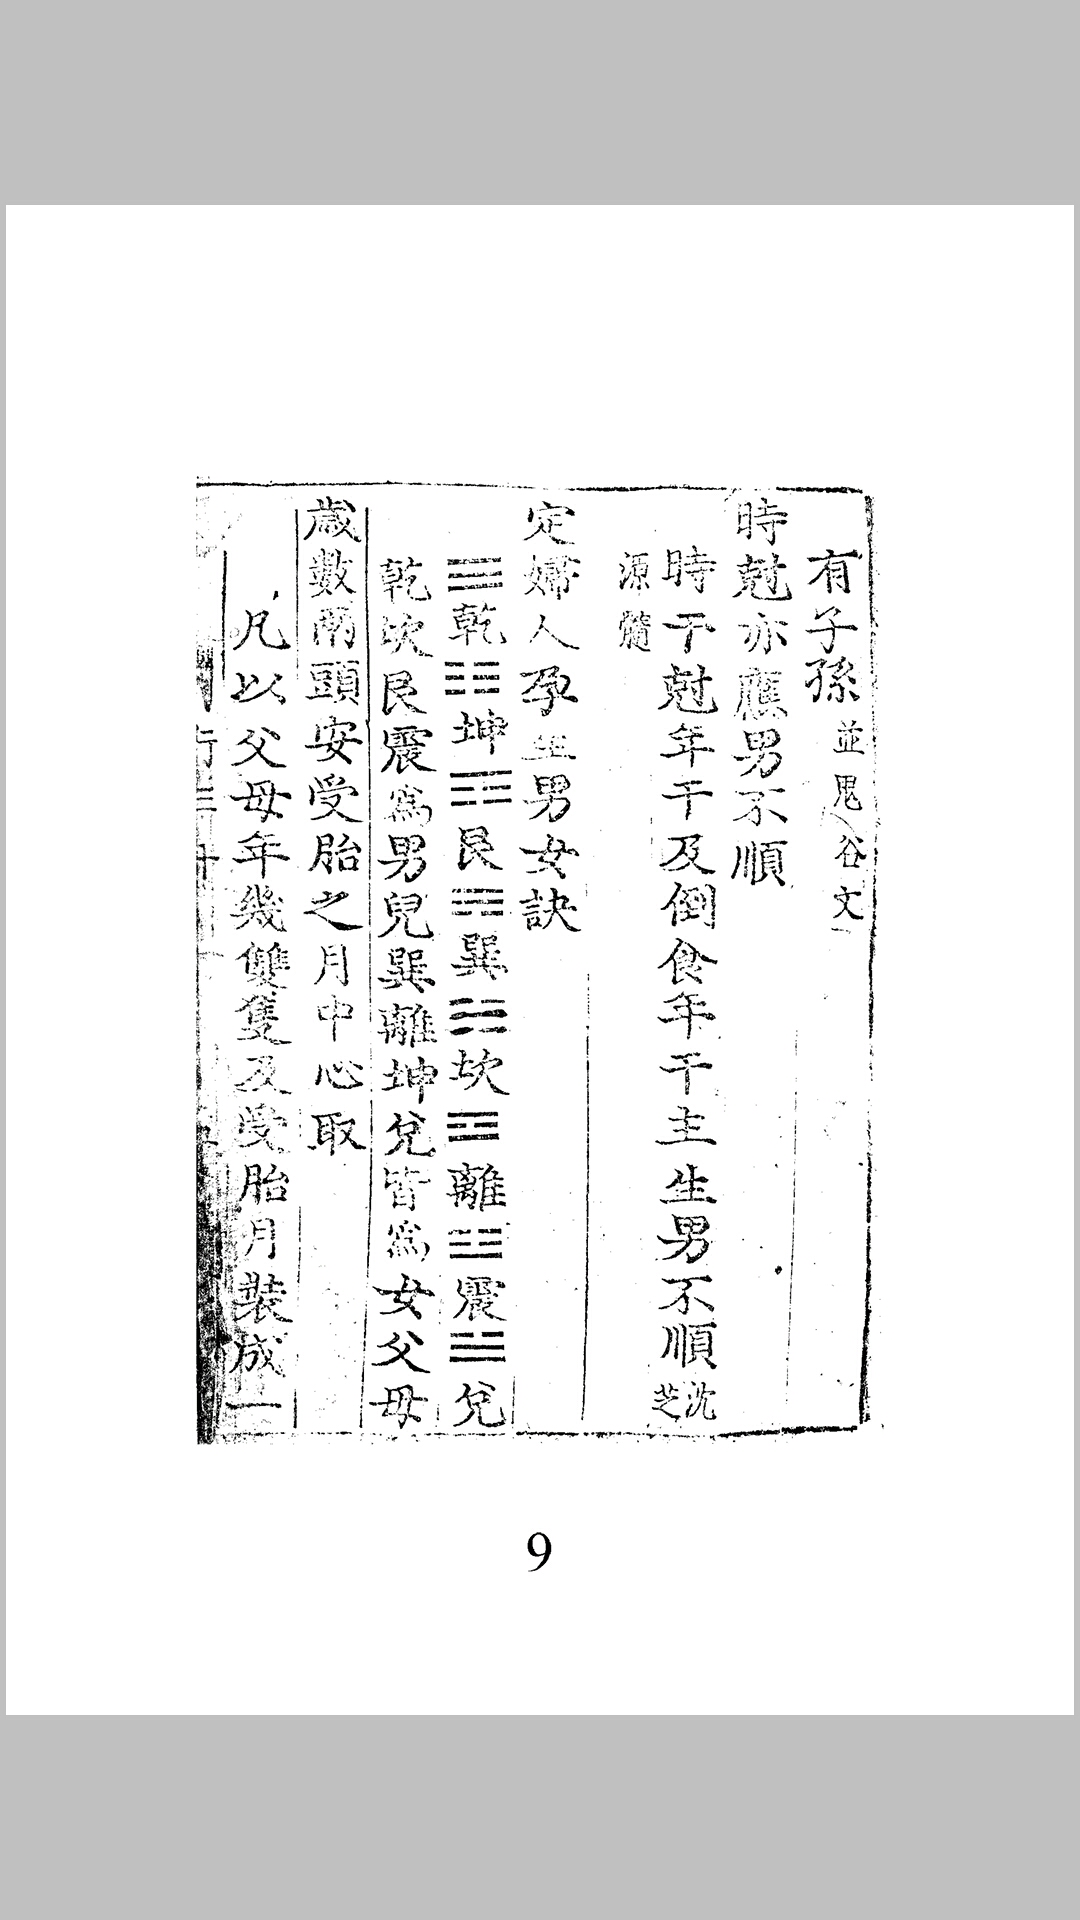 有子孫並鬼谷文
時尅亦應男不順
時干尅年干及倒食年干主生男不順沈芝
源髓
定婦人孕生男女訣
☰乾☷坤☶艮☴巽☵坎☲離☳震☱兌
乾坎艮震為男兒巽離坤兌皆為女父母
歲數兩頭安受胎之月中心取
凡以父母年幾雙隻及受胎月裝成一
9